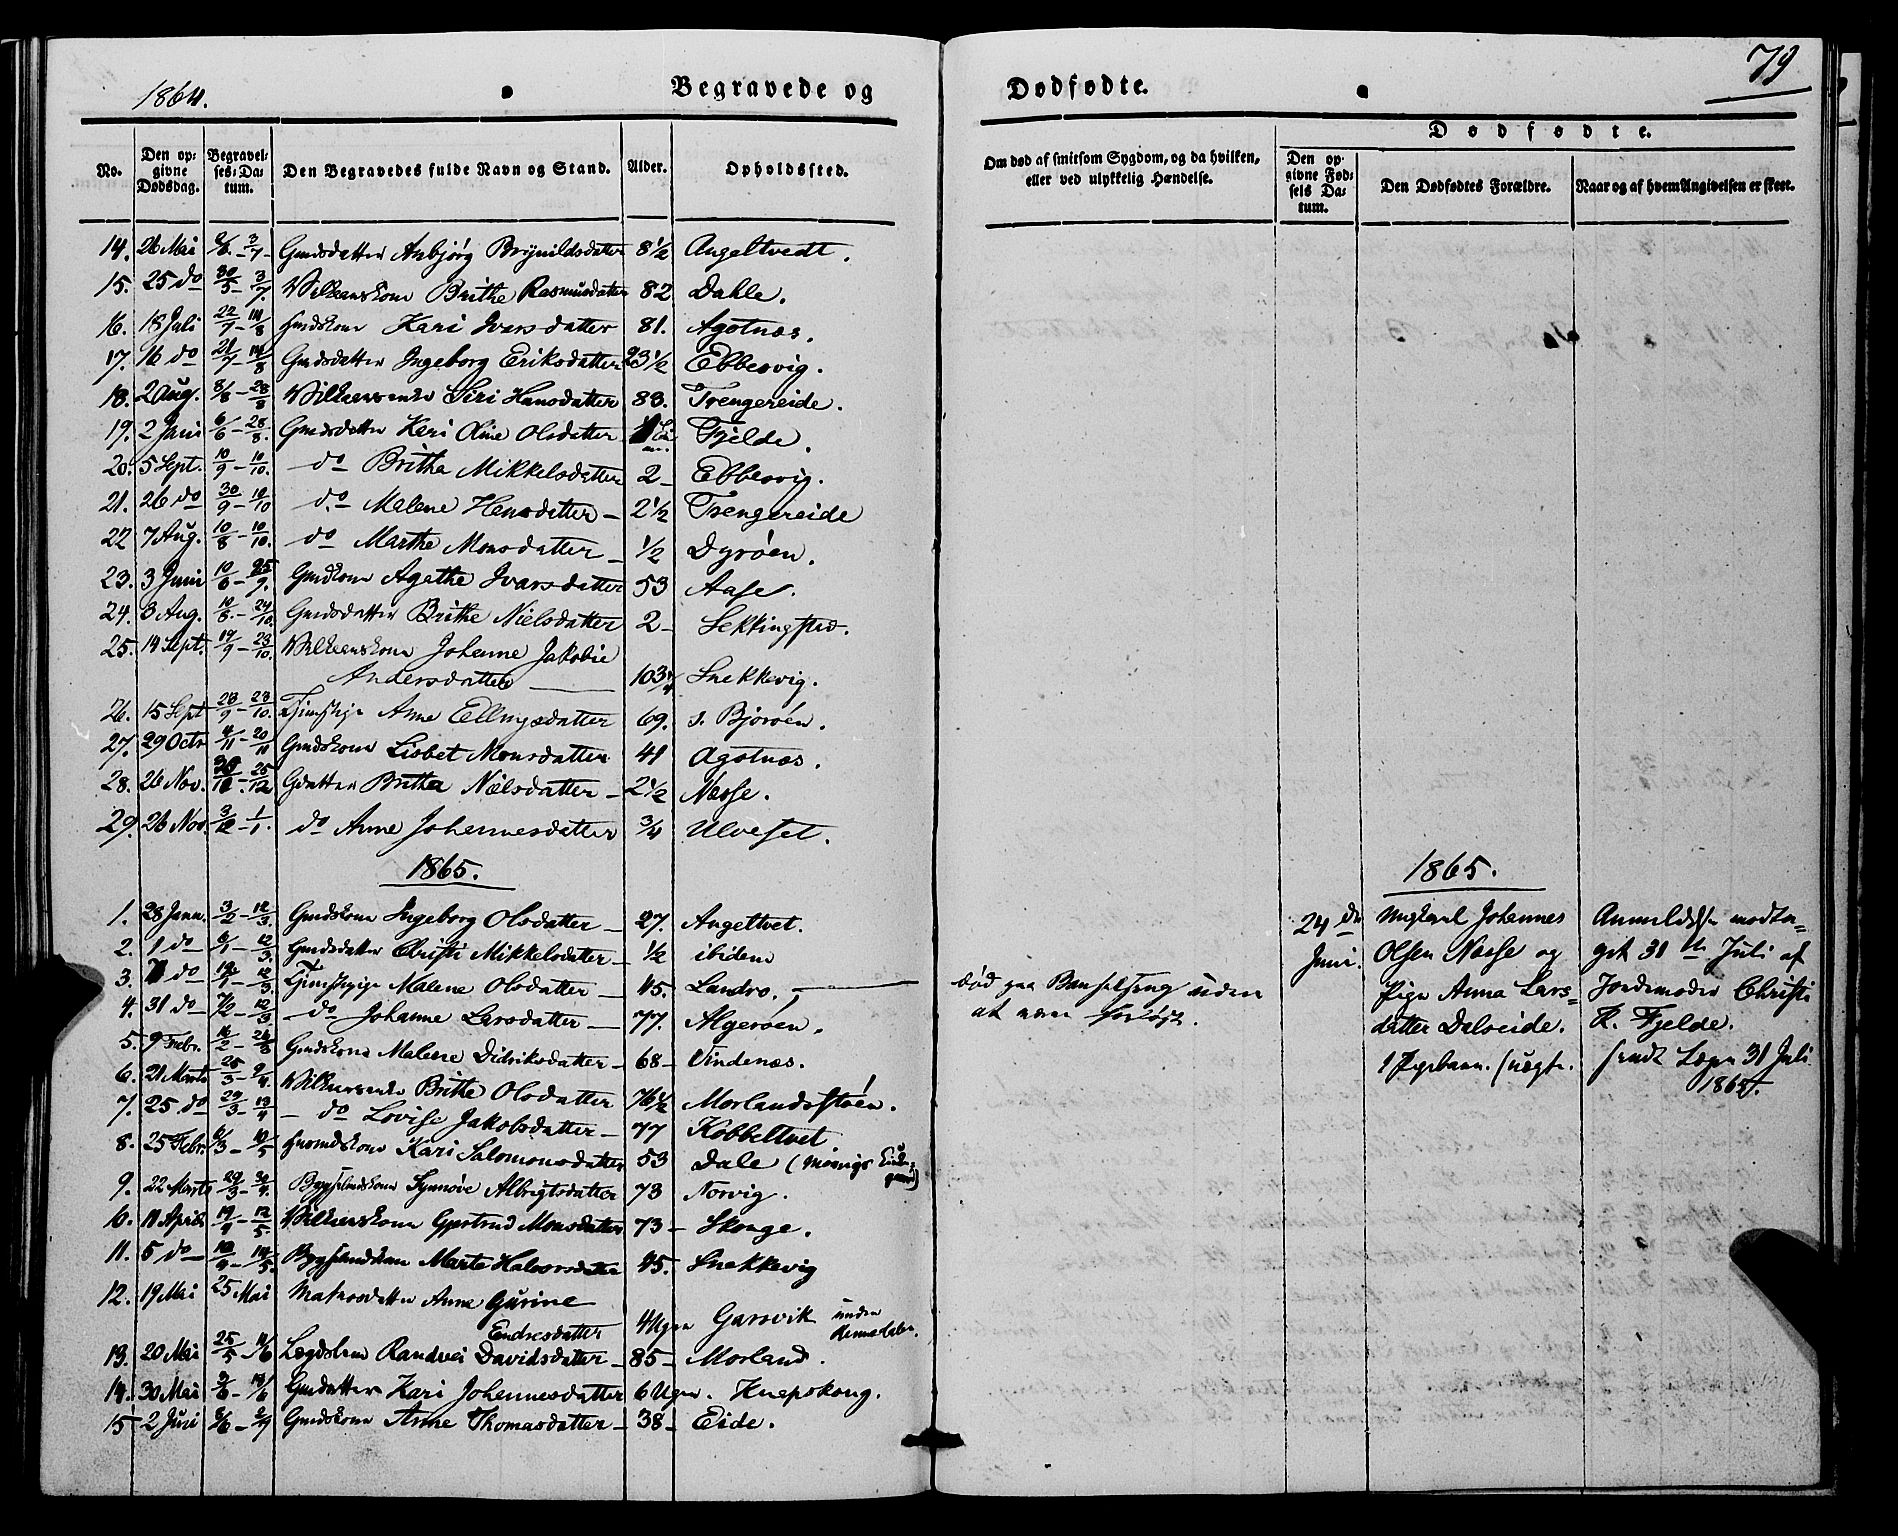 1864.
Begravede og
No.
Den opgivne Dødsdag.
Begravelses-Datum.
Den Begravedes fulde Navn og Stand.
Alder.
Opholdssted.
14. 26 Mai 2/6 - 3/7 Gmdsdatter Anbjørg Brynildsdatter 8 1/2 Angeltvedt.
15. 25 do 30/5 - 3/7. Vilkaarskone Brithe Rasmusdatter 82 Dahle.
16. 18 Juli 22/7 - 14/8 Gmdskone Kari Ivarsdatter 81. Agotnæs.
17. 16 do 21/7 - 14/8 Gmdsdatter Ingeborg Eriksdatter 23 1/2 Ebbesvig.
18. 2 Aug. 8/8 - 28/8 Vilkaarsenke Siri Hansdatter 83. Trengereide.
19. 2 Juni 6/6 - 28/8. Gmdsdatter Kari Oline Olsdatter Fjelde.
20. 5 Sept. 10/9 - 10/10. do Britha Mikkelsdatter 2 - Ebbesvig.
21. 26 do 30/9 - 10/10 do. Malene Hansdatter - 2 1/2 Trengereide
22 7 Aug. 10/8 - 10/10. do Marthe Monsdatter - 1/2 Dyrøen.
23. 3 Juni 10/6 - 25/9. Gmdskone Agathe Ivarsdatter 53 Aase.
24. 3 Aug. 10/8. - 24/10. Gmdsdatter Brithe Nielsdatter 2 - Sekkingstad.
25. 14 Sept. 19/9 - 23/10. Vilkaarskone Johanne Jakobie
Andersdatter 103 1/4 Snekkevig.
26. 15 Sept 23/9 - 23/10. Anne Ellingsdatter 69. s. Bjorøen.
27. 29 Octr 4/11 - 20/11 Gmdskone Lisbet Monsdatter 41 Agotnæs.
28. 26 Nov. - 25/12 Gdatter Britha Nielsdatter - 2 1/2 Næsse.
29. 26 Nov. 3/12 - 1/1. do Anne Johannesdatter 3/4 Ulveset.
1865.
1. 28 Janu. 3/2 - 12/3. Gmdskone Ingeborg Olsdatter - 27. Angeltvet.
2. 1 do 6/1 - 12/3. Gmdsdatter Christi Mikkelsdatter - 1/2 ibidem
3. do - 12/3. Tjenstepige Malene Olsdatter - 45. Landro.
4. 31 do 7/2 - 12/3 do. Johanne Larsdatter - 77. Algerøen.
5. 9 Febr. 16/2 - 26/3 Gmdskone Malene Didriksdatter - 68 - Vindenæs.
6. 21 Marts 25/3 - 9/4. Vilkaarsenke Brithe Olsdatter 76 1/2 Morlandsstøen.
7. 25 do 29/3 - 13/4 - do Lovise Jakobsdatter - 77 Kobbeltvet
8. 25 Febr. 6/3 - 10/5 Kari Salomonsdatter 53 Dale
9. 22 Marts 29/3 - 30/4. Bygselmdskone Synnøve Albrigtsdatter 73 Norvig.
10. 11 April 19/4 - 12/5. Vilkaarskone Gjertrud Monsdatter 73 - Skoge.
11. 5 do 10/4 - 14/5. Bygselmdskone Marte Halvorsdatter 45. Snekkevig
12. 19 Mai 25 Mai Matrosdatter Anne Gurine
Endresdatter 4 Uger Garsvik under
13. 20 Mai 25/5 - 11/6 Lægdslem Randvei Davidsdatter - 85 - Morland.
14. 30 Mai 3/6 - 13/6 Gmdatter Kari Johannesdatter 6 Uger. Knapskoug.
15 2 Juni 8/6 - 2/9 Gmdskone Anne Thomasdatter - 38 - Eide.
79
Dødfødte.
Om død af smitsom Sygdom, og da hvilken, eller ved ulykkelig Hændelse.
Dødfødte.
Den opgivne Fødsels Datum.
Den Dødfødtes Forældre.
Naar og af hvem Angivelsen er skeet.
død paa Barselseng uden
at være forløst.
1865.
24 de
Juni.
Ungkarl Johannes
Olsen Næsse og
Pige Anna Lars-
datter Dalseide.
1 Pigebarn. (uægte.
Anmeldelse modta-
get 31 te Juli af
Jordemoder Christi
K. Fjelde.
31 Juli
1865.